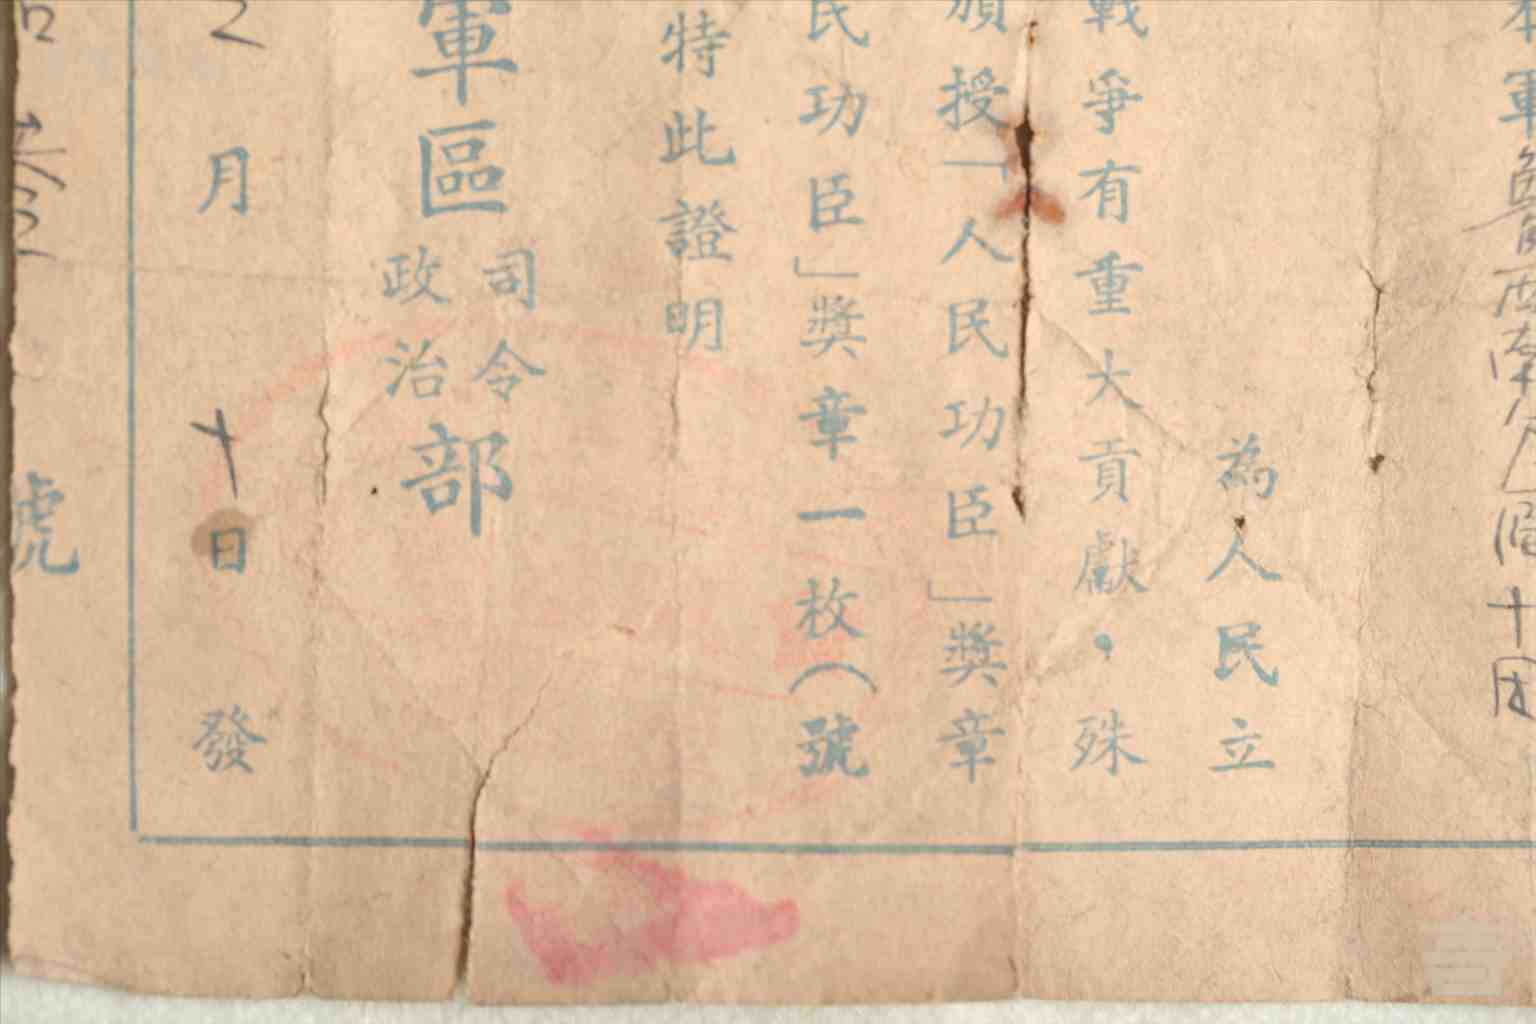 軍魯西南分區十团
為人民立
戰爭有重大貢獻·殊
頒授「人民功臣」獎章
民功臣」獎章一枚(號
特此證明
軍區司令政治部
月十日發
號